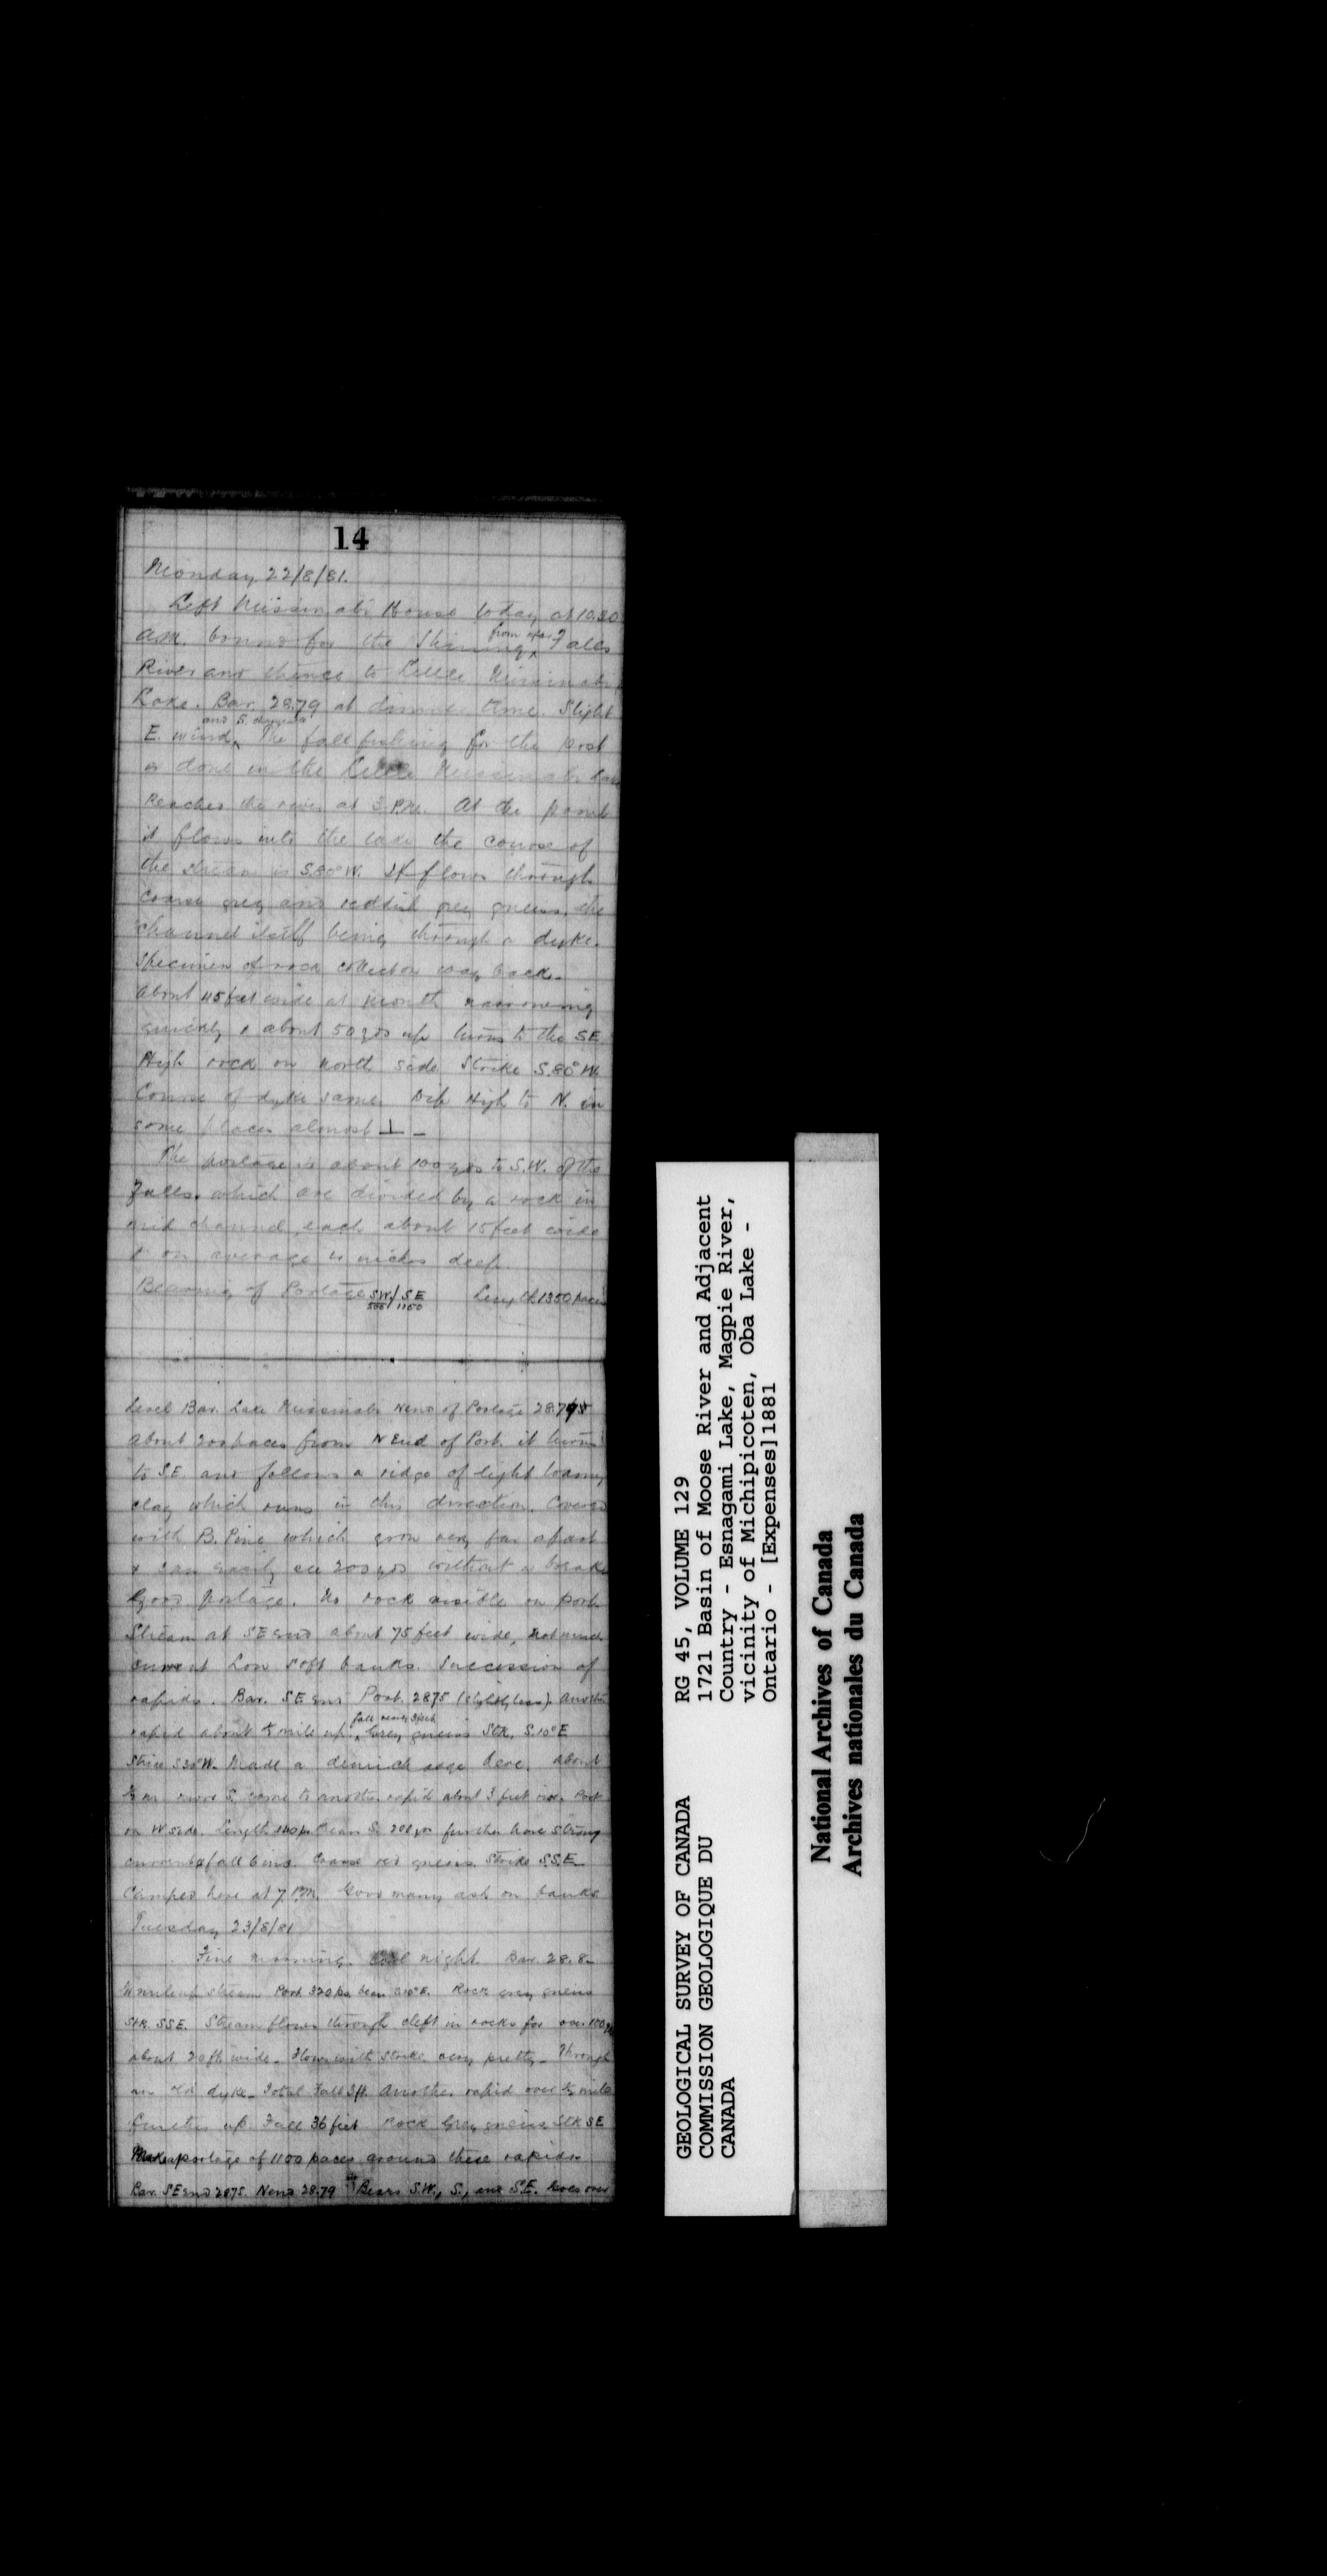 14
Monday 22/8/81.
Left Missinabi House today at 10.30
A.M. bound for the Shining from afar Falls
River and thence to Little Missinabi
Lake. Bar. 28.79 at dinner time. Slight
E. wind and S. The fall fishing for the post
is done in the Little Missinabi Lake
Reaches the river at 3. P.M. At the point
it flows into the lake the course of
the stream is S.80°W. It flows through
coarse grey and reddish grey gneiss, the
channel itself being through a dyke.
Specimen of rock collect on way back.
About 45 feet wide at mouth narrowing
quickly & about 50 yds up turns to the SE
High rock on north side Strike S.80°W
Course of dyke same. Dip High to N. in
some places almost ⊥ –
The portage is about 100 yds to S.W. of the
Falls, which are divided by a rock in
mid channel, each about 15 feet wide
& on average inches deep.
Bearing of Portage SW/ SE Length 1350 paces
1150
Level Bar. Lake Missinabi N end of Portage 28.795
about 200 paces from N End of Port. it turns
to SE. and follows a ridge of light loamy
clay which runs in this direction. Covered
with B. Pine which grow very far apart
& can easily see 200 yds without a break
Good portage. No rock visible on port.
Stream at SE end about 75 feet wide, not much
current Low soft banks. Succession of
rapids. Bar. SE end Port. 2875 (slightly less). Another
rapid about ½ mile up. fall nearly 3 feet Grey gneiss Stk. S.10°E
Striæ S30°W. Made a demich adge here. About
more S. come to another rapid about 3 feet Port
on W side. Length 140 p. Bears S. 200 yds further have strong
current fall 6 ins. Coarse red gneiss. Strike S.S.E.
Camped here at 7 P.M. Good many ash on banks
Tuesday 23/8/81
Fine morning. Cool night. Bar. 28.8
mile up stream Port. 320 ps. bear S10°E. Rock grey gneiss
Stk. SSE. Stream flows through cleft in rocks for over 100
about 20 ft wide. Flows with strike. very pretty. Through
an old dyke. Total Fall 3 ft. Another rapid over ½ mile
further up. Fall 36 feet Rock Grey gneiss Stk SE
Make a portage of 1100 paces around these rapids
Bar. SE end 2875. N end 28.79 Bears S.W., S., and S.E. Goes over
GEOLOGICAL SURVEY OF CANADA
COMMISSION GEOLOGIQUE DU
CANADA
RG 45, VOLUME 129
1721 Basin of Moose River and Adjacent
Country - Esnagami Lake, Magpie River,
vicinity of Michipicoten, Oba Lake -
Ontario - [Expenses]1881
National Archives of Canada
Archives nationales du Canada